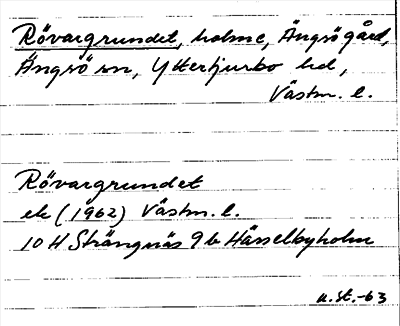 Rövargrundet, holme, Ängsögård,
Ängsö sn, Yttertjurbo hd,
Västm. l.
Rövargrundet
ek (1962) Västm. l.
10 H Strängnäs 9 b Hässelbyholm
u.st.-63